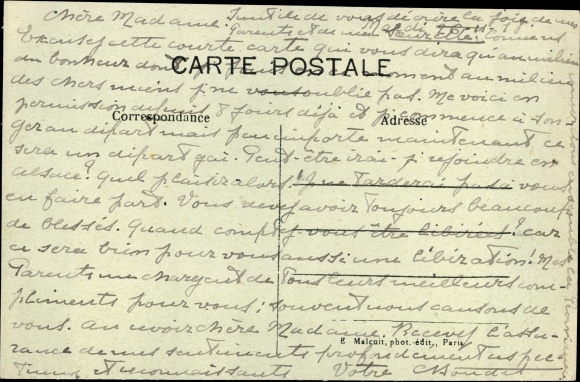 Chère Madame. Inutile de vous décrire la joie de mes
Parents et de me
Excusez cette courte carte qui vous dira qu'au milieu
du bonheur dont je en ce moment au milieu
CARTE POSTALE
des chers miens je ne vous oublie pas. Me voici en
permission depuis 8 jours déjà et je commence à son-
Correspondance
Adresse
ger au départ mais peu importe maintenant ce
sera un départ gai. Peut-être irai-je rejoindre en
Alsace? Quel plaisir alors! Je ne tarderai pas à vous
en faire part. Vous devez avoir toujours beaucoup
de blessés. Quand comptez-vous être libérée? car
ce sera bien pour vous aussi une libération! Mes
Parents me chargent de tous leurs meilleurs com-
pliments pour vous; souvent nous causons de
vous. Au revoir chère Madame, Recevez l'assu-
E Malcuit, phot. édit., Paris
rance de mes sentiments profondément respec-
tueux et reconnaissants Votre